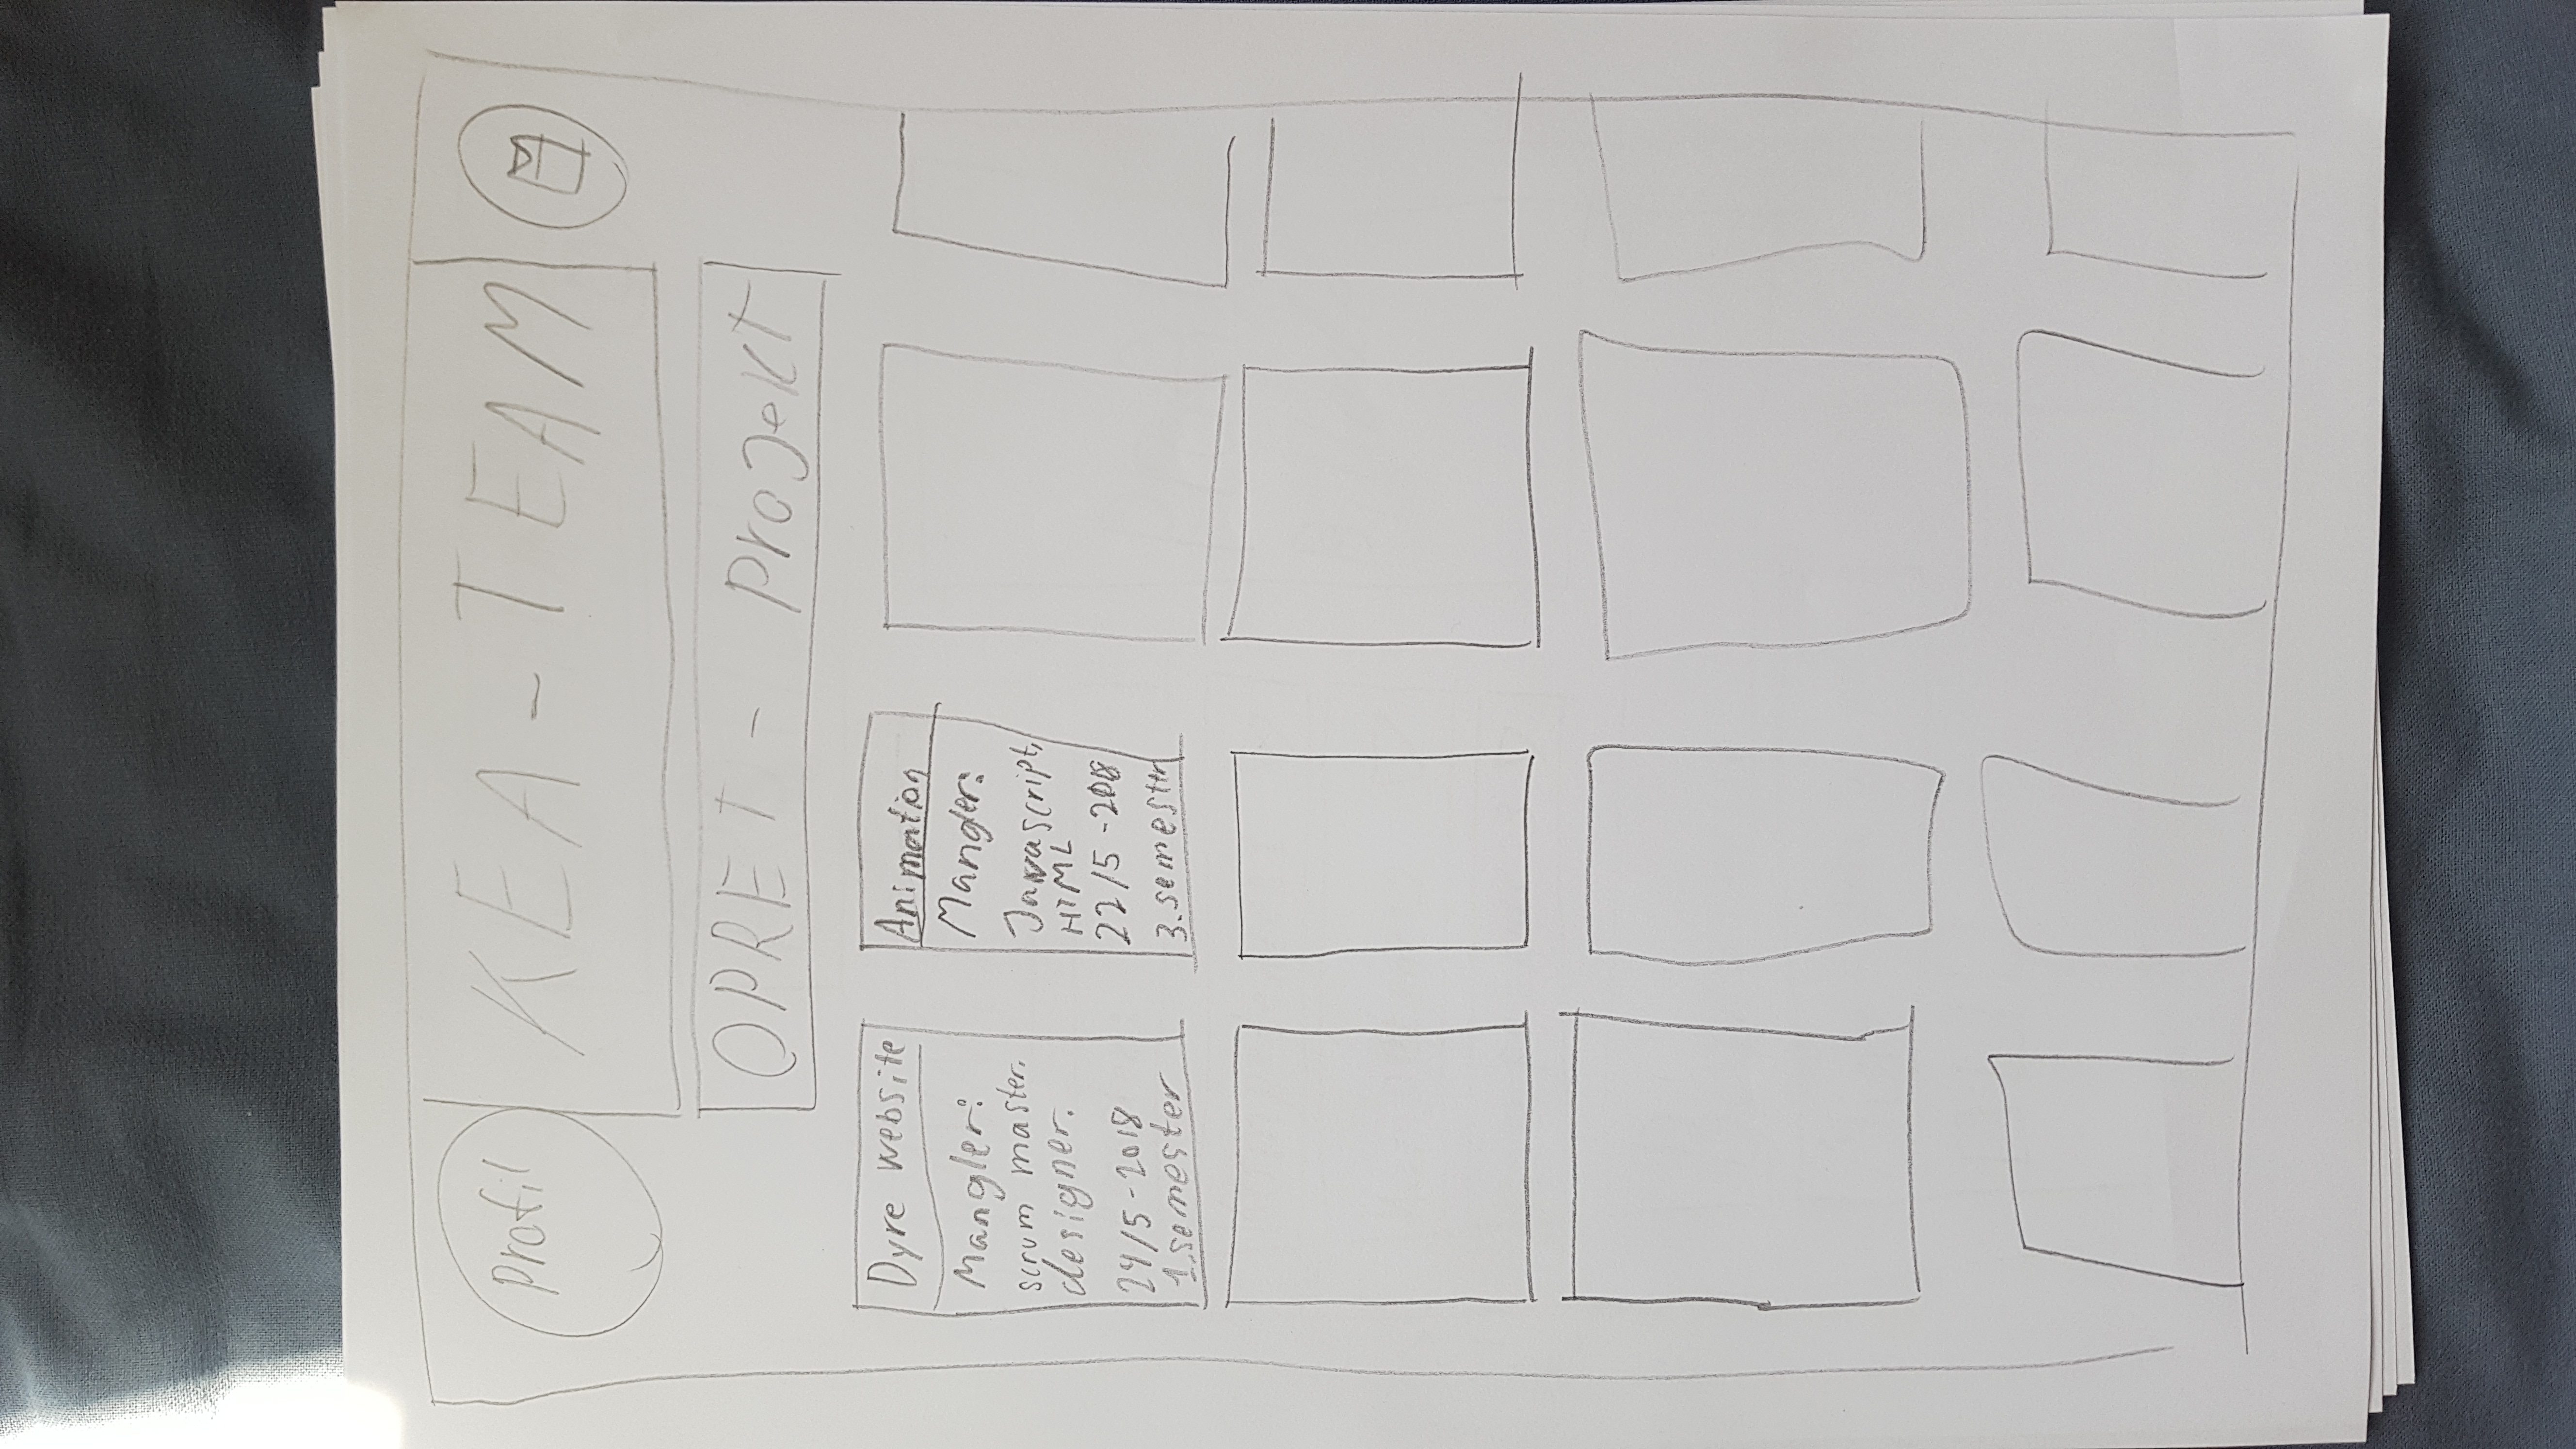 Profil
KEA - TEAM
OPRET - Projekt
Dyre website
Mangler:
scrum master.
designer.
24/5-2018
1.semester
Animation
Mangler:
Javascript,
HTML
22/5-2018
3.semester